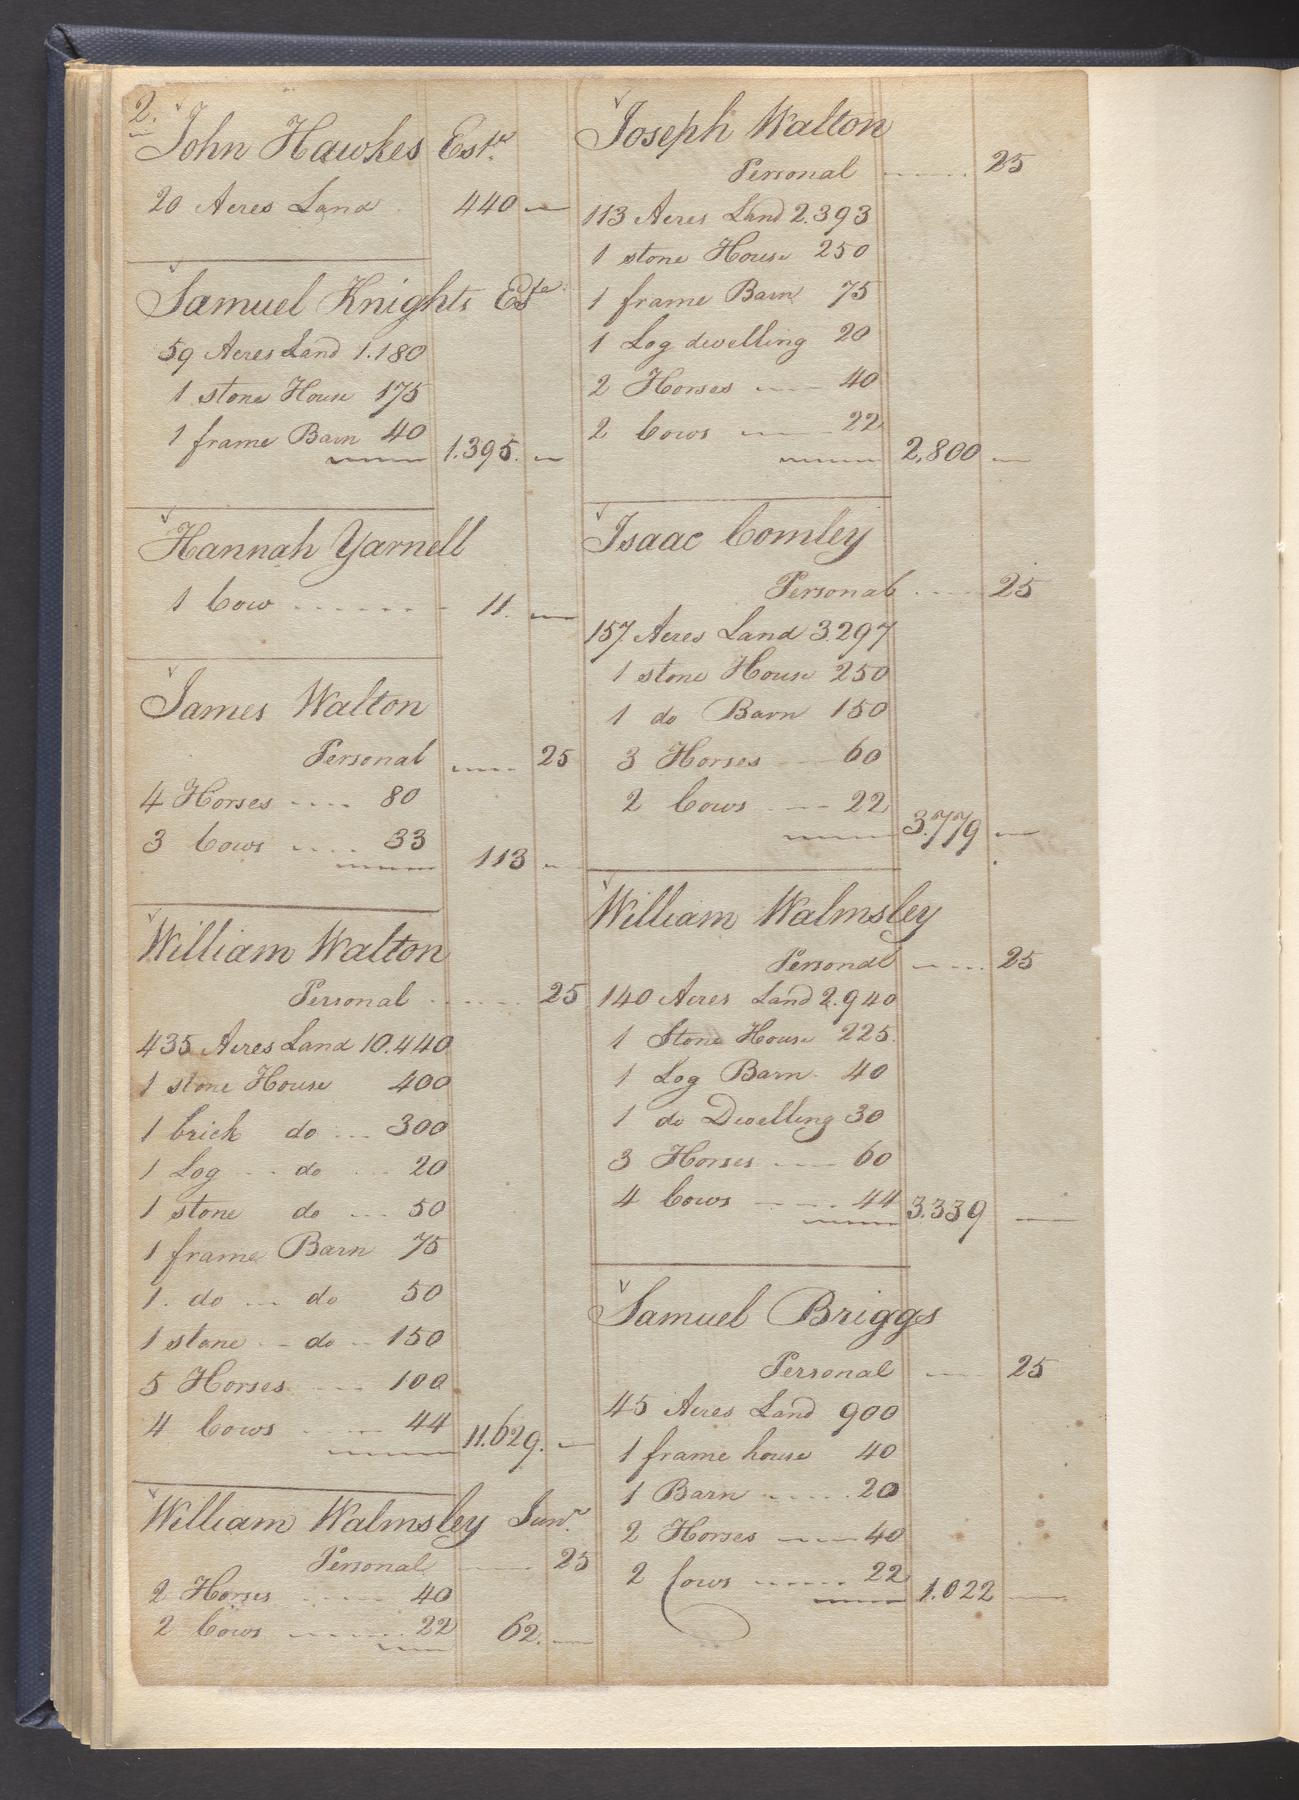 2.
John Hawkes Estr.
20 Acres Land 440 —
Samuel Knights Este.
59 Acres Land 1.180
1 stone House 175
1 frame Barn 40
1.395. —
Hannah Yarnell
1 Cow ....... 11. —
James Walton
Personal ..... 25
4 Horses .... 80
3 Cows .... 33
113 —
William Walton
Personal ...... 25
435 Acres Land 10.440
1 stone House 400
1 brick do ... 300
1 Log ... do ... 20
1 stone do ... 50
1 frame Barn 75
1. do ... do 50
1 stone .. do .. 150
5 Horses .... 100
4 Cows ..... 44
11.629. —
William Walmsley Junr.
Personal ..... 25
2 Horses ..... 40
2 Cows ....... 22
62. —
Joseph Walton
Personal ...... 25
113 Acres Land 2.393
1 stone House 250
1 frame Barn 75
1 Log dwelling 20
2 Horses .... 40
2 Cows ..... 22
2,800 —
Isaac Comley
Personal .... 25
157 Acres Land 3.297
1 stone House 250
1 do Barn 150
3 Horses ... 60
2 Cows .... 22
3.779 —
William Walmsley
Personal ..... 25
140 Acres Land 2.940
1 Stone House 225.
1 Log Barn. 40
1 do Dwelling 30
3 Horses .... 60
4 Cows ..... 44
3.339 —
Samuel Briggs
Personal .... 25
45 Acres Land 900
1 frame house 40
1 Barn ..... 20
2 Horses .... 40
2 Cows ...... 22
1.022 —